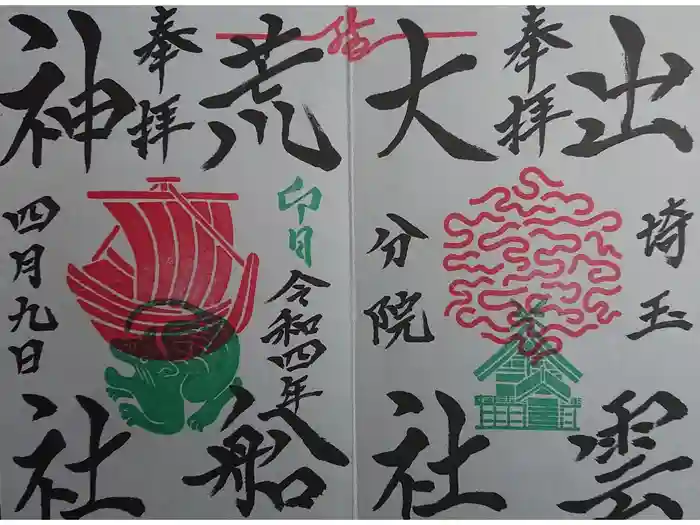 出雲
埼玉
奉拝
大社
分院
結
荒船
卯月
令和四年
奉拝
神社
四月九日